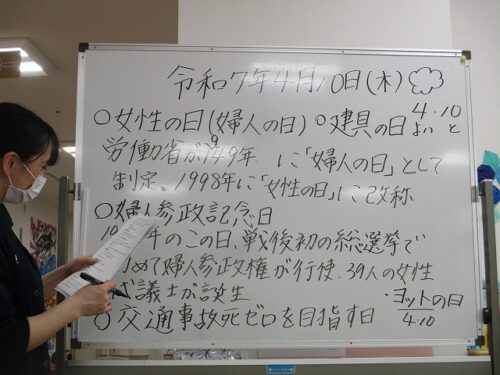 令和7年4月10日(木)
○女性の日(婦人の日)
○建具の日 4・10 よい と
労働省が1949年に「婦人の日」として
制定。1998年に「女性の日」に改称
○婦人参政記念日
年のこの日、戦後初の総選挙で
めて婦人参政権が行使。39人の女性
議士が誕生
・ヨットの日 4・10
○交通事故死ゼロを目指す日